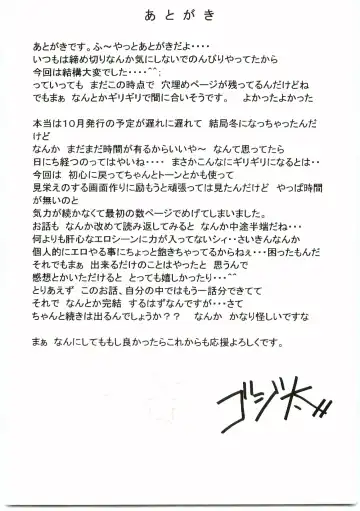 あとがき
あとがきです。ふ～やっとあとがきだよ・・・・
いつもは締め切りなんか気にしないでのんびりやってたから
今回は結構大変でした・・・・^^;
っていっても まだこの時点で 穴埋めページが残ってるんだけどね
でもまぁ なんとかギリギリで間に合いそうです。 よかったよかった
本当は１０月発行の予定が遅れに遅れて 結局冬になっちゃったんだ
けど
なんか まだまだ時間が有るからいいや～ なんて思ってたら
日にち経つのってはやいね・・・・ まさかこんなにギリギリになるとは・・
今回は 初心に戻ってちゃんとトーンとかも使って
見栄えのする画面作りに励もうと頑張っては見たんだけど やっぱ時間
が無いのと
気力が続かなくて最初の数ページでめげてしまいました。
お話も なんか改めて読み返してみると なんか中途半端だね・・・
何よりも肝心なエロシーンに力が入ってないシィ・・さいきんなんか
個人的にエロやる事にちょっと飽きちゃってるからねぇ・・・困ったもんだ
それでもまぁ 出来るだけのことはやったと 思うんで
感想とかいただけると とっても嬉しかったり・・・^^
とりあえず このお話、自分の中ではもう一話分できてて
それで なんとか完結 するはずなんですが・・・さて
ちゃんと続きは出るんでしょうか？？ なんか かなり怪しいですな
まぁ なんにしてももし良かったらこれからも応援よろしくです。
ゴジ太